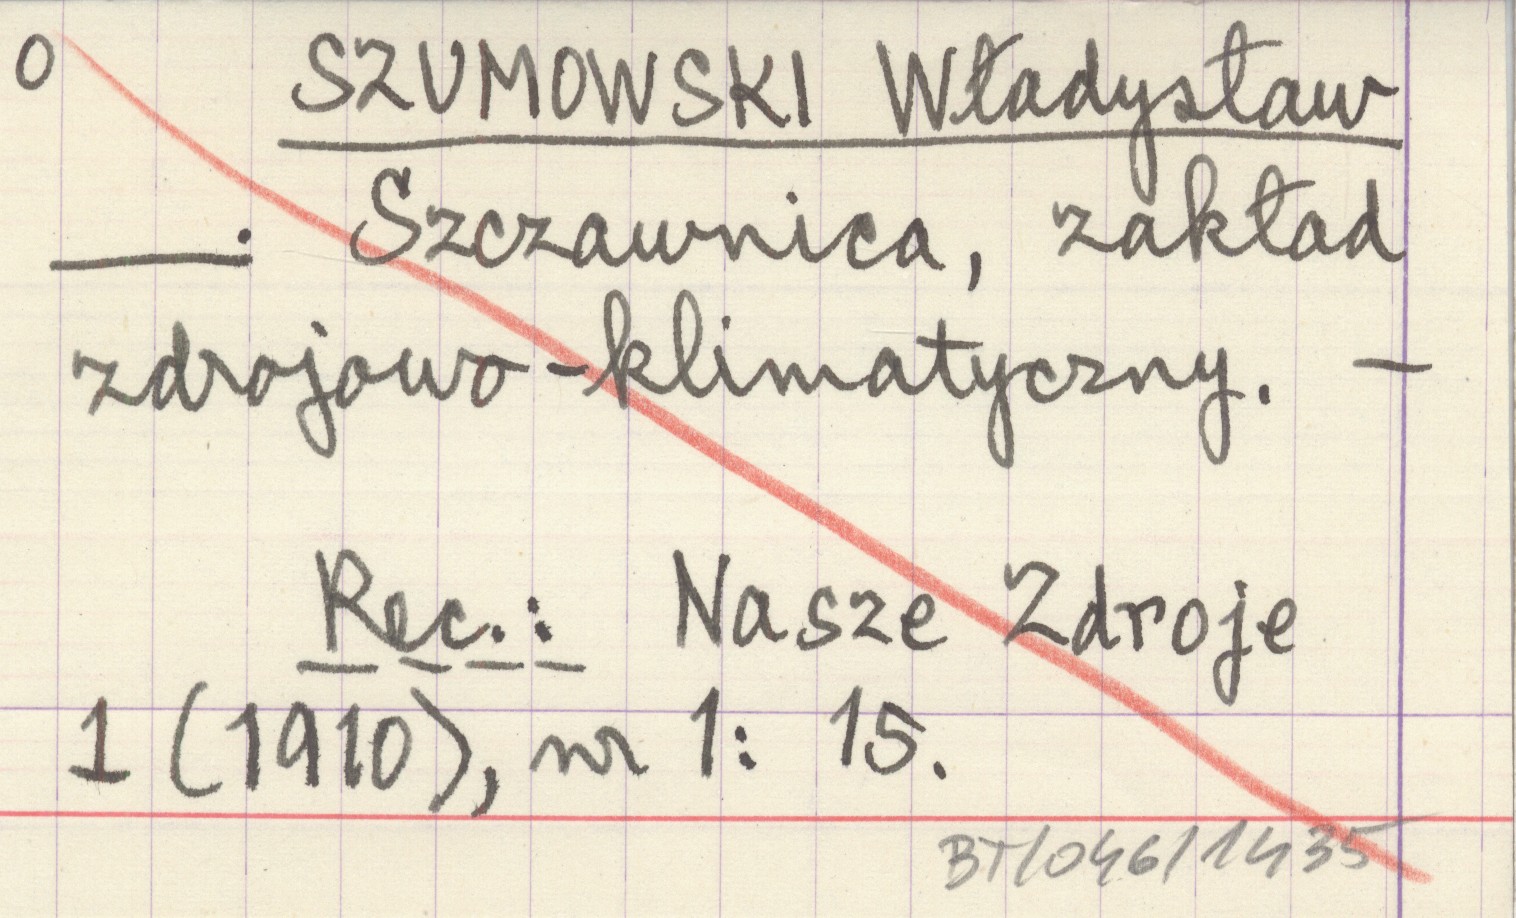 0 SZUMOWSKI Władysław
___: Szczawnica, zakład
zdrojowo-klimatyczny. —
Rec.: Nasze Zdroje
1 (1910), nr 1: 15.
BT/046/1435